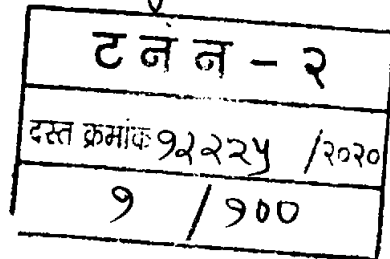 ट नं न - २
दस्त क्रमांक १२२२५ /२०२०
१ /१००